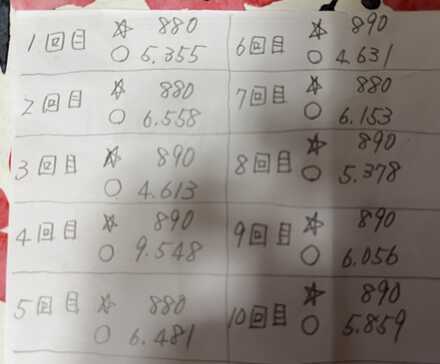 1回目 ☆ 880
○ 5.355
2回目 ☆ 880
○ 6.558
3回目 ☆ 890
○ 4.613
4回目 ☆ 890
○ 9.548
5回目 ☆ 880
○ 6.481
6回目 ☆ 890
○ 4.631
7回目 ☆ 880
○ 6.153
8回目 ☆ 890
○ 5.378
9回目 ☆ 890
○ 6.056
10回目 ☆ 890
○ 5.859